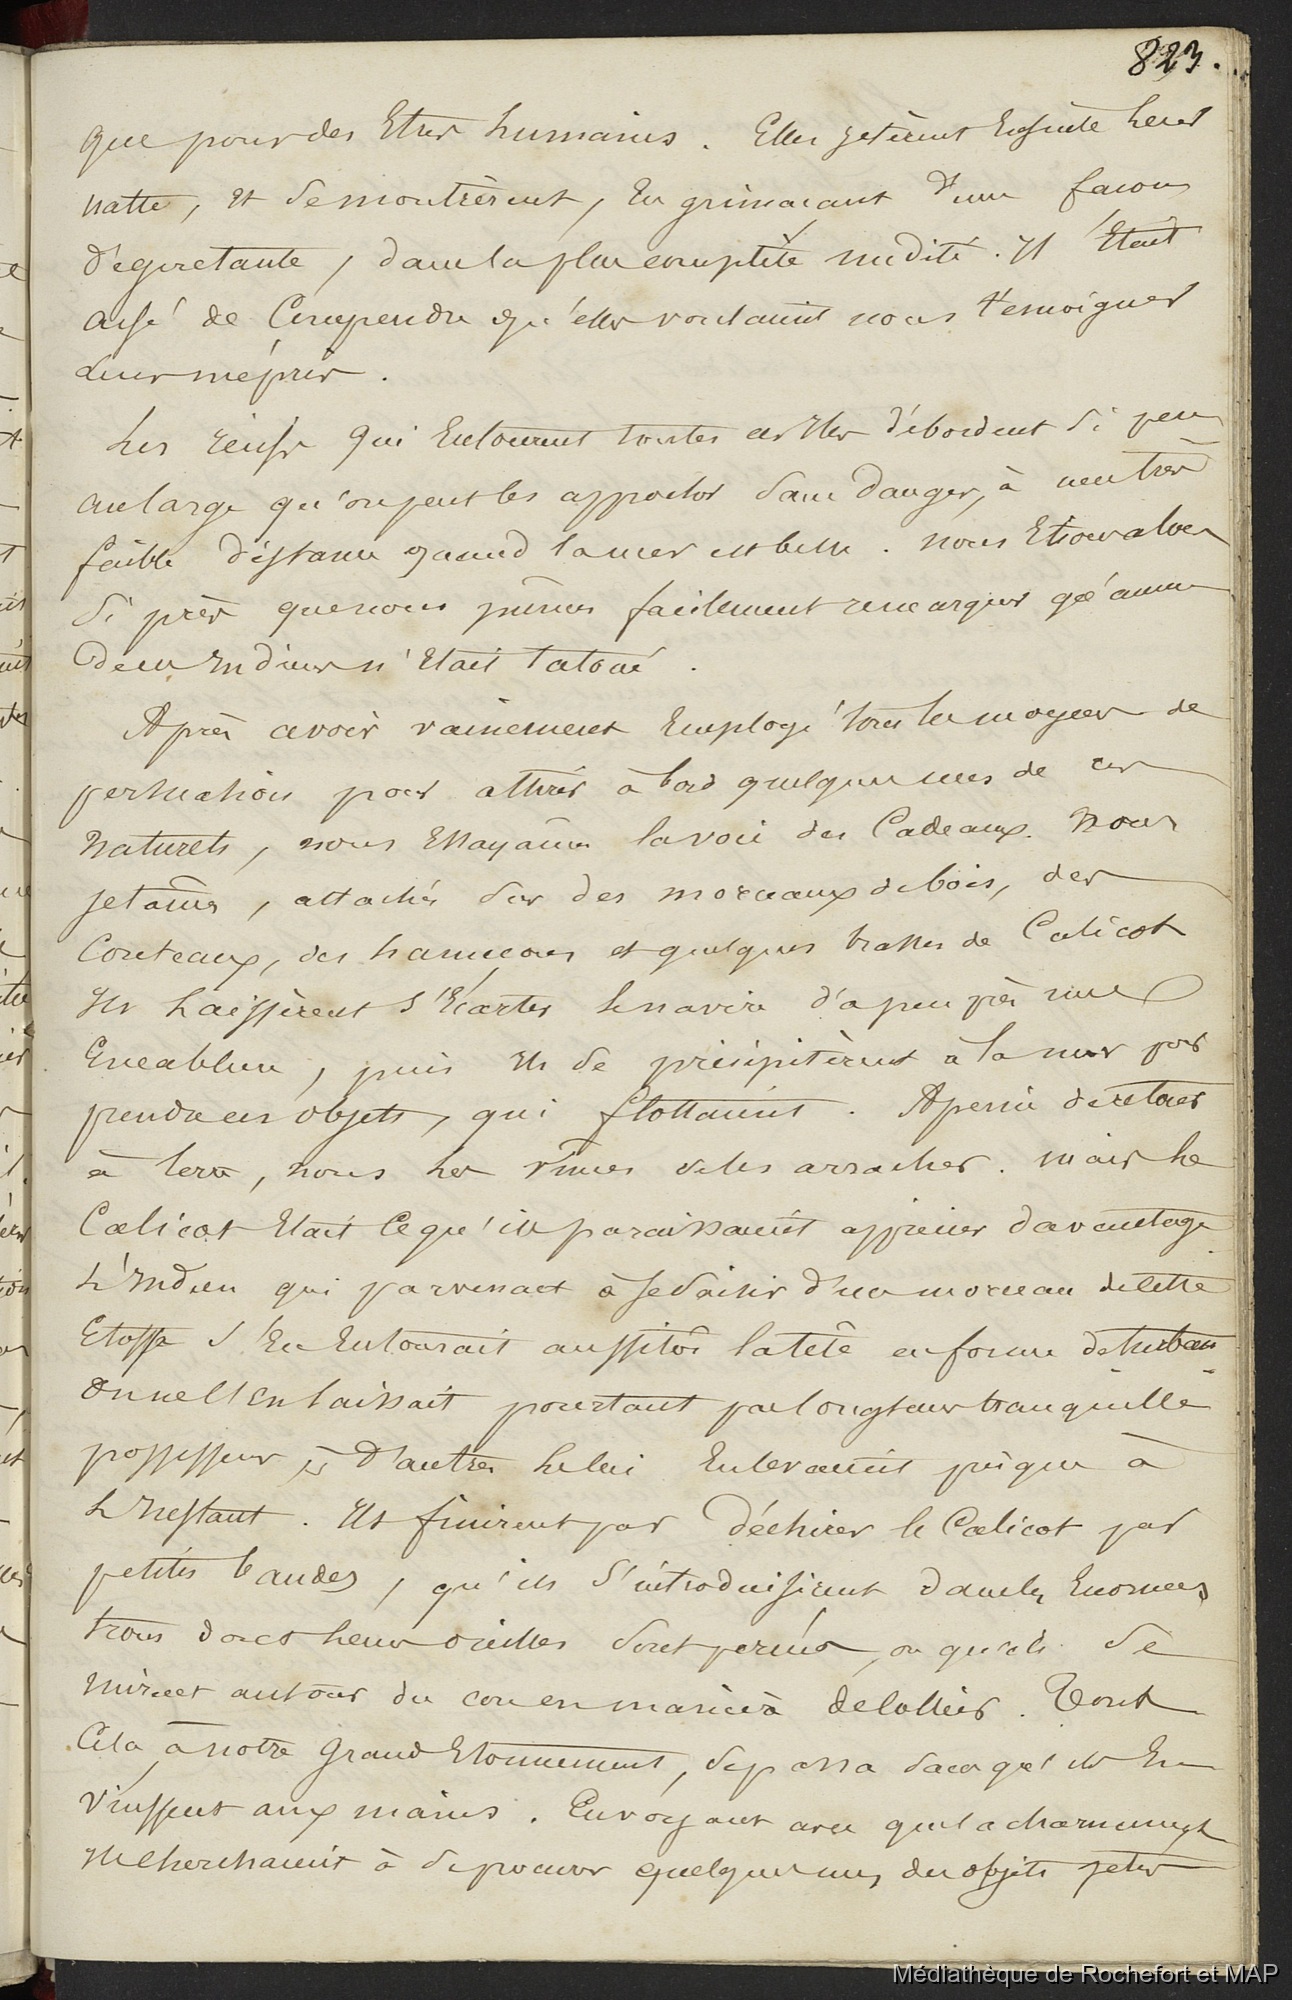 823.
que pour des Etres humains. Elles jetèrent Ensuite leur
natte, et se montrèrent, En grimacant d'une facon
dégoretante, dans la plus complète nudité. Il Etait
aisé de Comprendre qu'elles voulaient nous témoigner
Leur mépris.
Les récifs qui Entourent toutes ces Iles débordent si peu
au large qu'on peut les approcher sans Danger, à une très
faible distance quand la mer est belle. nous Etions alors
si près que nous pûmes facilement remarquer qu'aucun
de ces Indiens n'Etait tatoué.
Après avoir vainement Employé tous les moyens de
persuasion pour attirer à bord quelques uns de ces
Naturels, nous Essayâmes la voie des Cadeaux. Nous
jetâmes, attachés sur des morceaux de bois, des
Couteaux, des hameçons et quelques brasses de Calicot
Ils Laissèrent s'Ecarter le navire d'a peu près une
Encablure, puis Ils se précipitèrent à la mer pour
prendre ces objets, qui flottaient. A peine de retour
à terre, nous Les vîmes se les arracher. mais Le
Calicot Etait Ce qu'ils paraissaient apprécier davantage
L'Indien qui parvenait à se saisir d'un morceau de cette
Etoffe s'En Entourait aussitôt la tête en forme de turban
On ne l'En laissait pourtant pas longtems tranquille
possesseur, D'autres Le lui Enlevaient presque à
L'Instant. Ils finirent par déchirer le Calicot par
petites bandes, qu'ils s'introduisirent dans les Enormes
trous dont Leurs oreilles sont percées, ou qu'ils se
mirent autour du cou en manière de collier. Tout
Cela, à notre Grand Etonnement, se passa sans qu'ils En
vinssent aux mains. En voyant avec quel acharnement
Ils cherchaient à se procurer quelques uns des objets jetés
Médiathèque de Rochefort et MAP